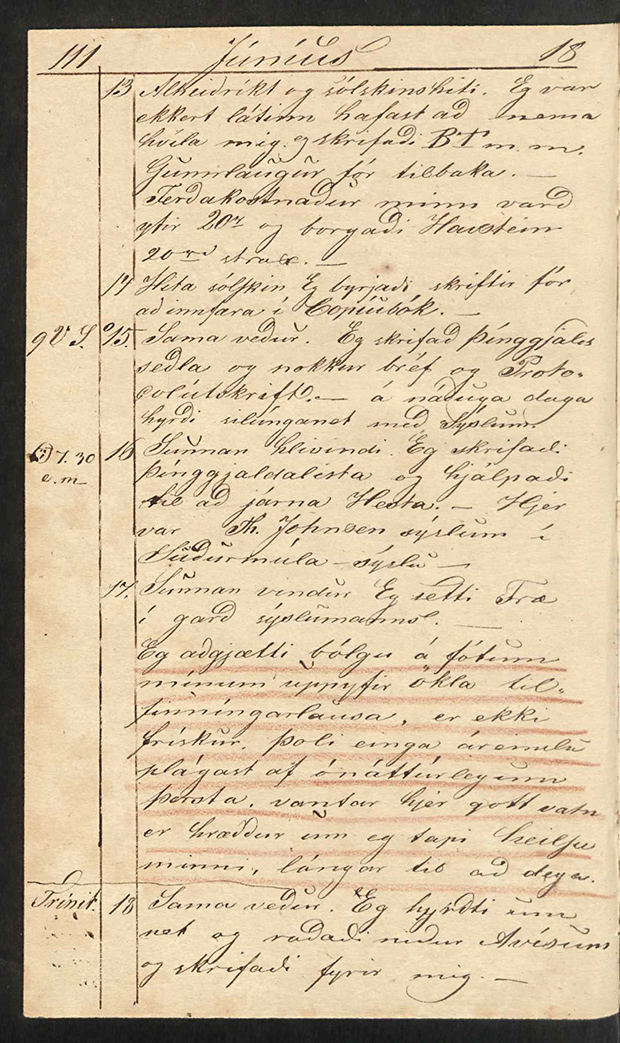 111 Júníus 18
13 Alheiðríkt og sólskinshiti. Eg var
ekkert látinn hafast að nema
hvíla mig. og skrifaði BT m. m.
Gunnlaugur fór tilbaka. —
Ferðakostnaður minn varð
yfir 20 og borgaði Havstein
20 strax. —
14 Hita sólskin Eg byrjaði skriftir fór
að innfæra í Copíubók. —
9 V S. 15. Sama veður. Eg skrifað þinggjalds
seðla og nokkur bréf og Proto-
colútskrift. — á náðuga daga
hyrði silúnganet með Sýslum
7.30 16 Sunnan hlivindi. Eg skrifaði
e.m þinggjaldalista og hjálpaði
til að járna Hesta. — Hjer
var Th. Johnsen sýslum í
Suðurmúla-sýslu —
17. Sunnan vindur Eg setti Træ
í garð sýslumanns. —
Eg aðgjætti bólgu á fótum
mínum uppyfir ökla til-
finníngarlausa, er ekki
frískur, þoli einga áreinslu
plágast af ónáttúrlegum
þorsta, vantar hjér gott vatn
er hræddur um eg tapi heilsu
minni, lángar til að deya.
Trinit. 18 Sama veður. Eg hyrdti um
net og raðaði niður Avísum
og skrifaði fyrir mig. —